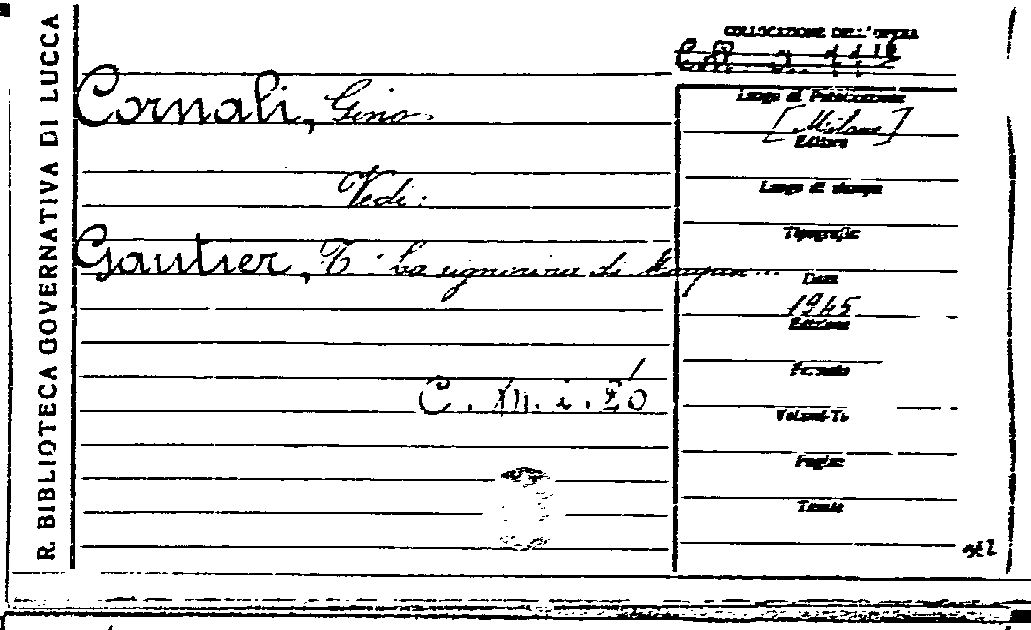 R. BIBLIOTECA GOVERNATIVA DI LUCCA
Cornali, Gino.
Vedi:
Gautier, T. La signorina di Maupin...
COLLOCAZIONE DELL'OPERA
Luogo di Pubblicazione
[Milano]
Editore
Luogo di stampa
Tipografia
Data
1945
Edizione
Formato
Volumi-To
Pagine
Tavole